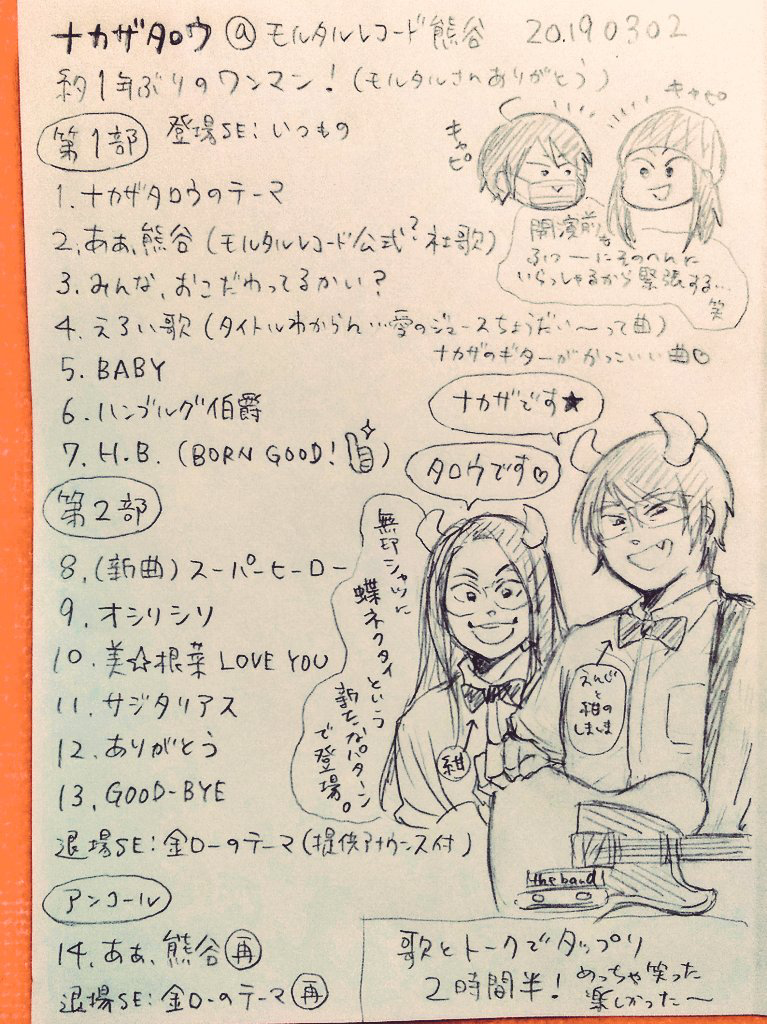 ナカザタロウ @ モルタルレコード熊谷 20190302
約1年ぶりのワンマン!(モルタルさんありがとう)
第1部 登場SE:いつもの
キャピ
キャピ
開演前も
ふつーにそのへんに
いらっしゃるから緊張する…
笑
1.ナカザタロウのテーマ
2.ああ、熊谷(モルタルレコード公式?社歌)
3.みんな、おこだわってるかい?
4.えろい歌(タイトルわからん…愛のジュースちょうだい〜って曲)
ナカザのギターがかっこいい曲♡
5.BABY
6.ハンブルグ伯爵
7.H.B.(BORN GOOD!)
ナカザです★
タロウです♡
第2部
無印シャツに
蝶ネクタイという
新たなパターン
で登場。
紺
えんじと紺のしましま
8.(新曲)スーパーヒーロー
9.オシリシリ
10.美☆根菜 LOVE YOU
11.サジタリアス
12.ありがとう
13.GOOD-BYE
退場SE:金ローのテーマ(提供アナウンス付)
the band!
アンコール
14.ああ、熊谷(再)
退場SE:金ローのテーマ(再)
歌とトークでタップリ
2時間半!めっちゃ笑った
楽しかった〜